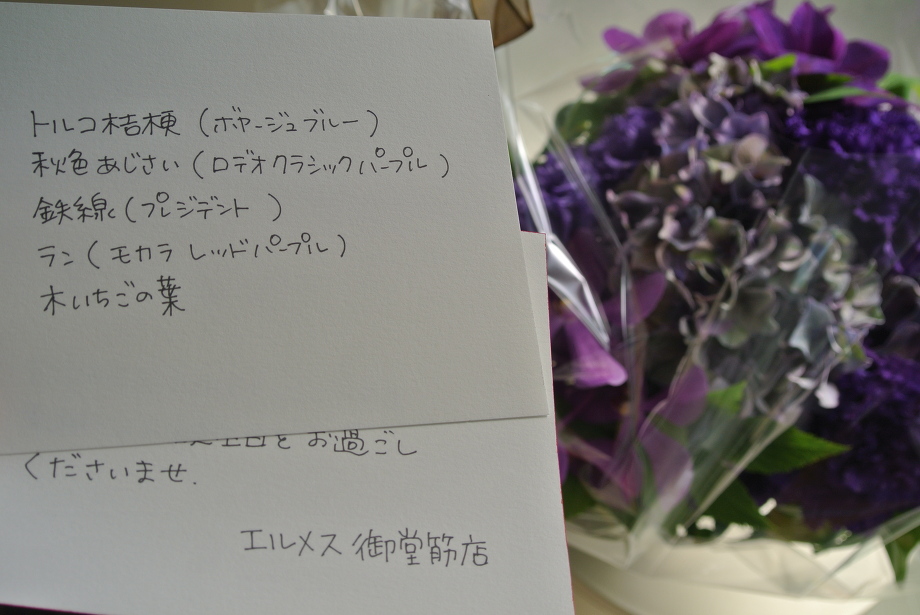 トルコ桔梗（ボヤージュブルー）
秋色あじさい（ロデオクラシックパープル）
鉄線（プレジデント）
ラン（モカラ レッドパープル）
木いちごの葉
お過ごし
くださいませ.
エルメス 御堂筋店